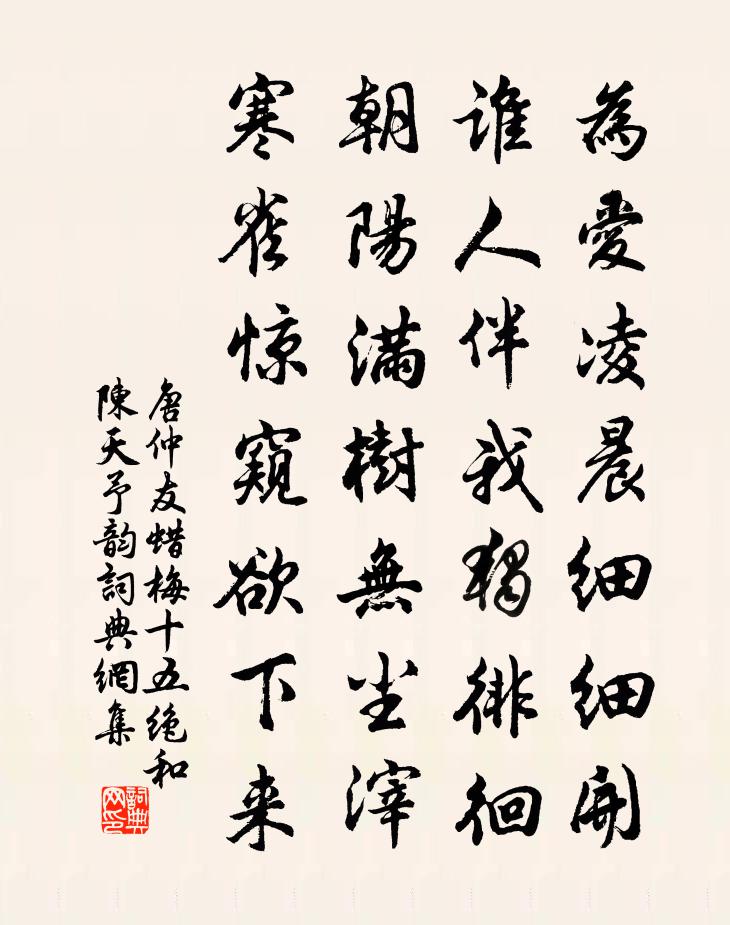 為愛凌晨細細開
誰人伴我獨徘徊
朝陽滿樹無尘滓
寒雀惊窺欲下来
唐仲友蜡梅十五絶和
陳天予韵詞典網集
詞典网印